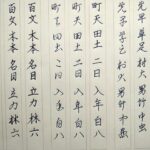 先早草足村大男竹中虫
先早草足村大男竹中虫
町天田土二日入年白八
町天田土二日入年白八
百文木本名目立力林六
百文木本名目立力林六